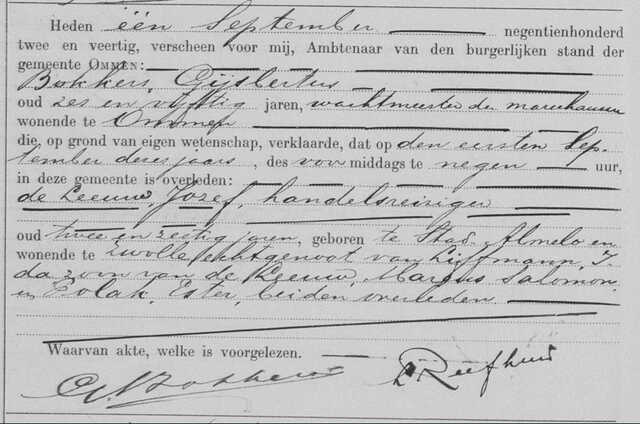 Heden één September negentienhonderd
twee en veertig, verscheen voor mij, Ambtenaar van den burgerlijken stand der
gemeente OMMEN:
Bokkers, Gijsbertus
oud zes en vijftig jaren, wachtmeester der marechaussee
wonende te Ommen
die, op grond van eigen wetenschap, verklaarde, dat op den eersten Sep-
tember dezes jaars, des voormiddags te negen uur,
in deze gemeente is overleden:
de Leeuw, Jozef, handelsreiziger
oud twee en zestig jaren, geboren te Stad-Almelo en
wonende te Zwolle, echtgenoot van Liffmann, I-
da, zoon van de Leeuw, Marcus Salomon
en Polak, Ester, beiden overleden.
Waarvan akte, welke is voorgelezen.
GBokkers Reefhuis